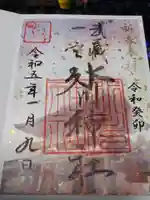 武蔵
一宮
氷川神社
令和癸卯
令和五年一月九日